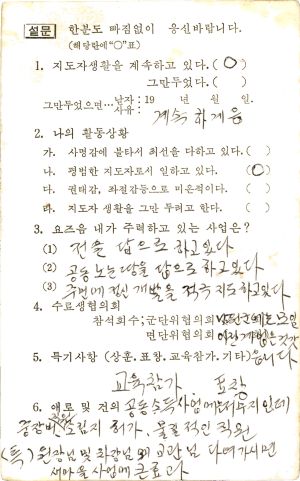 설문 한분도 빠짐없이 응신바랍니다.
(해당란에 "○"표)
1. 지도자생활을 계속하고 있다. (○)
그만두었다. ( )
그만두었으면… 날자: 19 년 월 일.
사유:
계속 하게음
2. 나의 활동상황
가. 사명감에 불타서 최선을 다하고 있다. ( )
나. 평범한 지도자로서 일하고 있다. (○)
다. 권태감, 좌절감등으로 미온적이다. ( )
라. 지도자 생활을 그만 두려고 한다. ( )
3. 요즈음 내가 주력하고 있는 사업은?
(1) 전을 답으로 하고있다
(2) 공동 노는땅을 답으로 하고있다
(3) 주변에 정신 개발을 적극 지도하고있다
4. 수료생협의회
참석회수; 군단위협의회
면단위협의회
5. 특기사항 (상훈. 표창. 교육참가. 기타)
교육참가 표창
6. 애로 및 건의 공동소득사업에
허가. 물질적인 직원
(특) 원장님 및 교관님 다녀가시면
새마을 사업에 큰효과